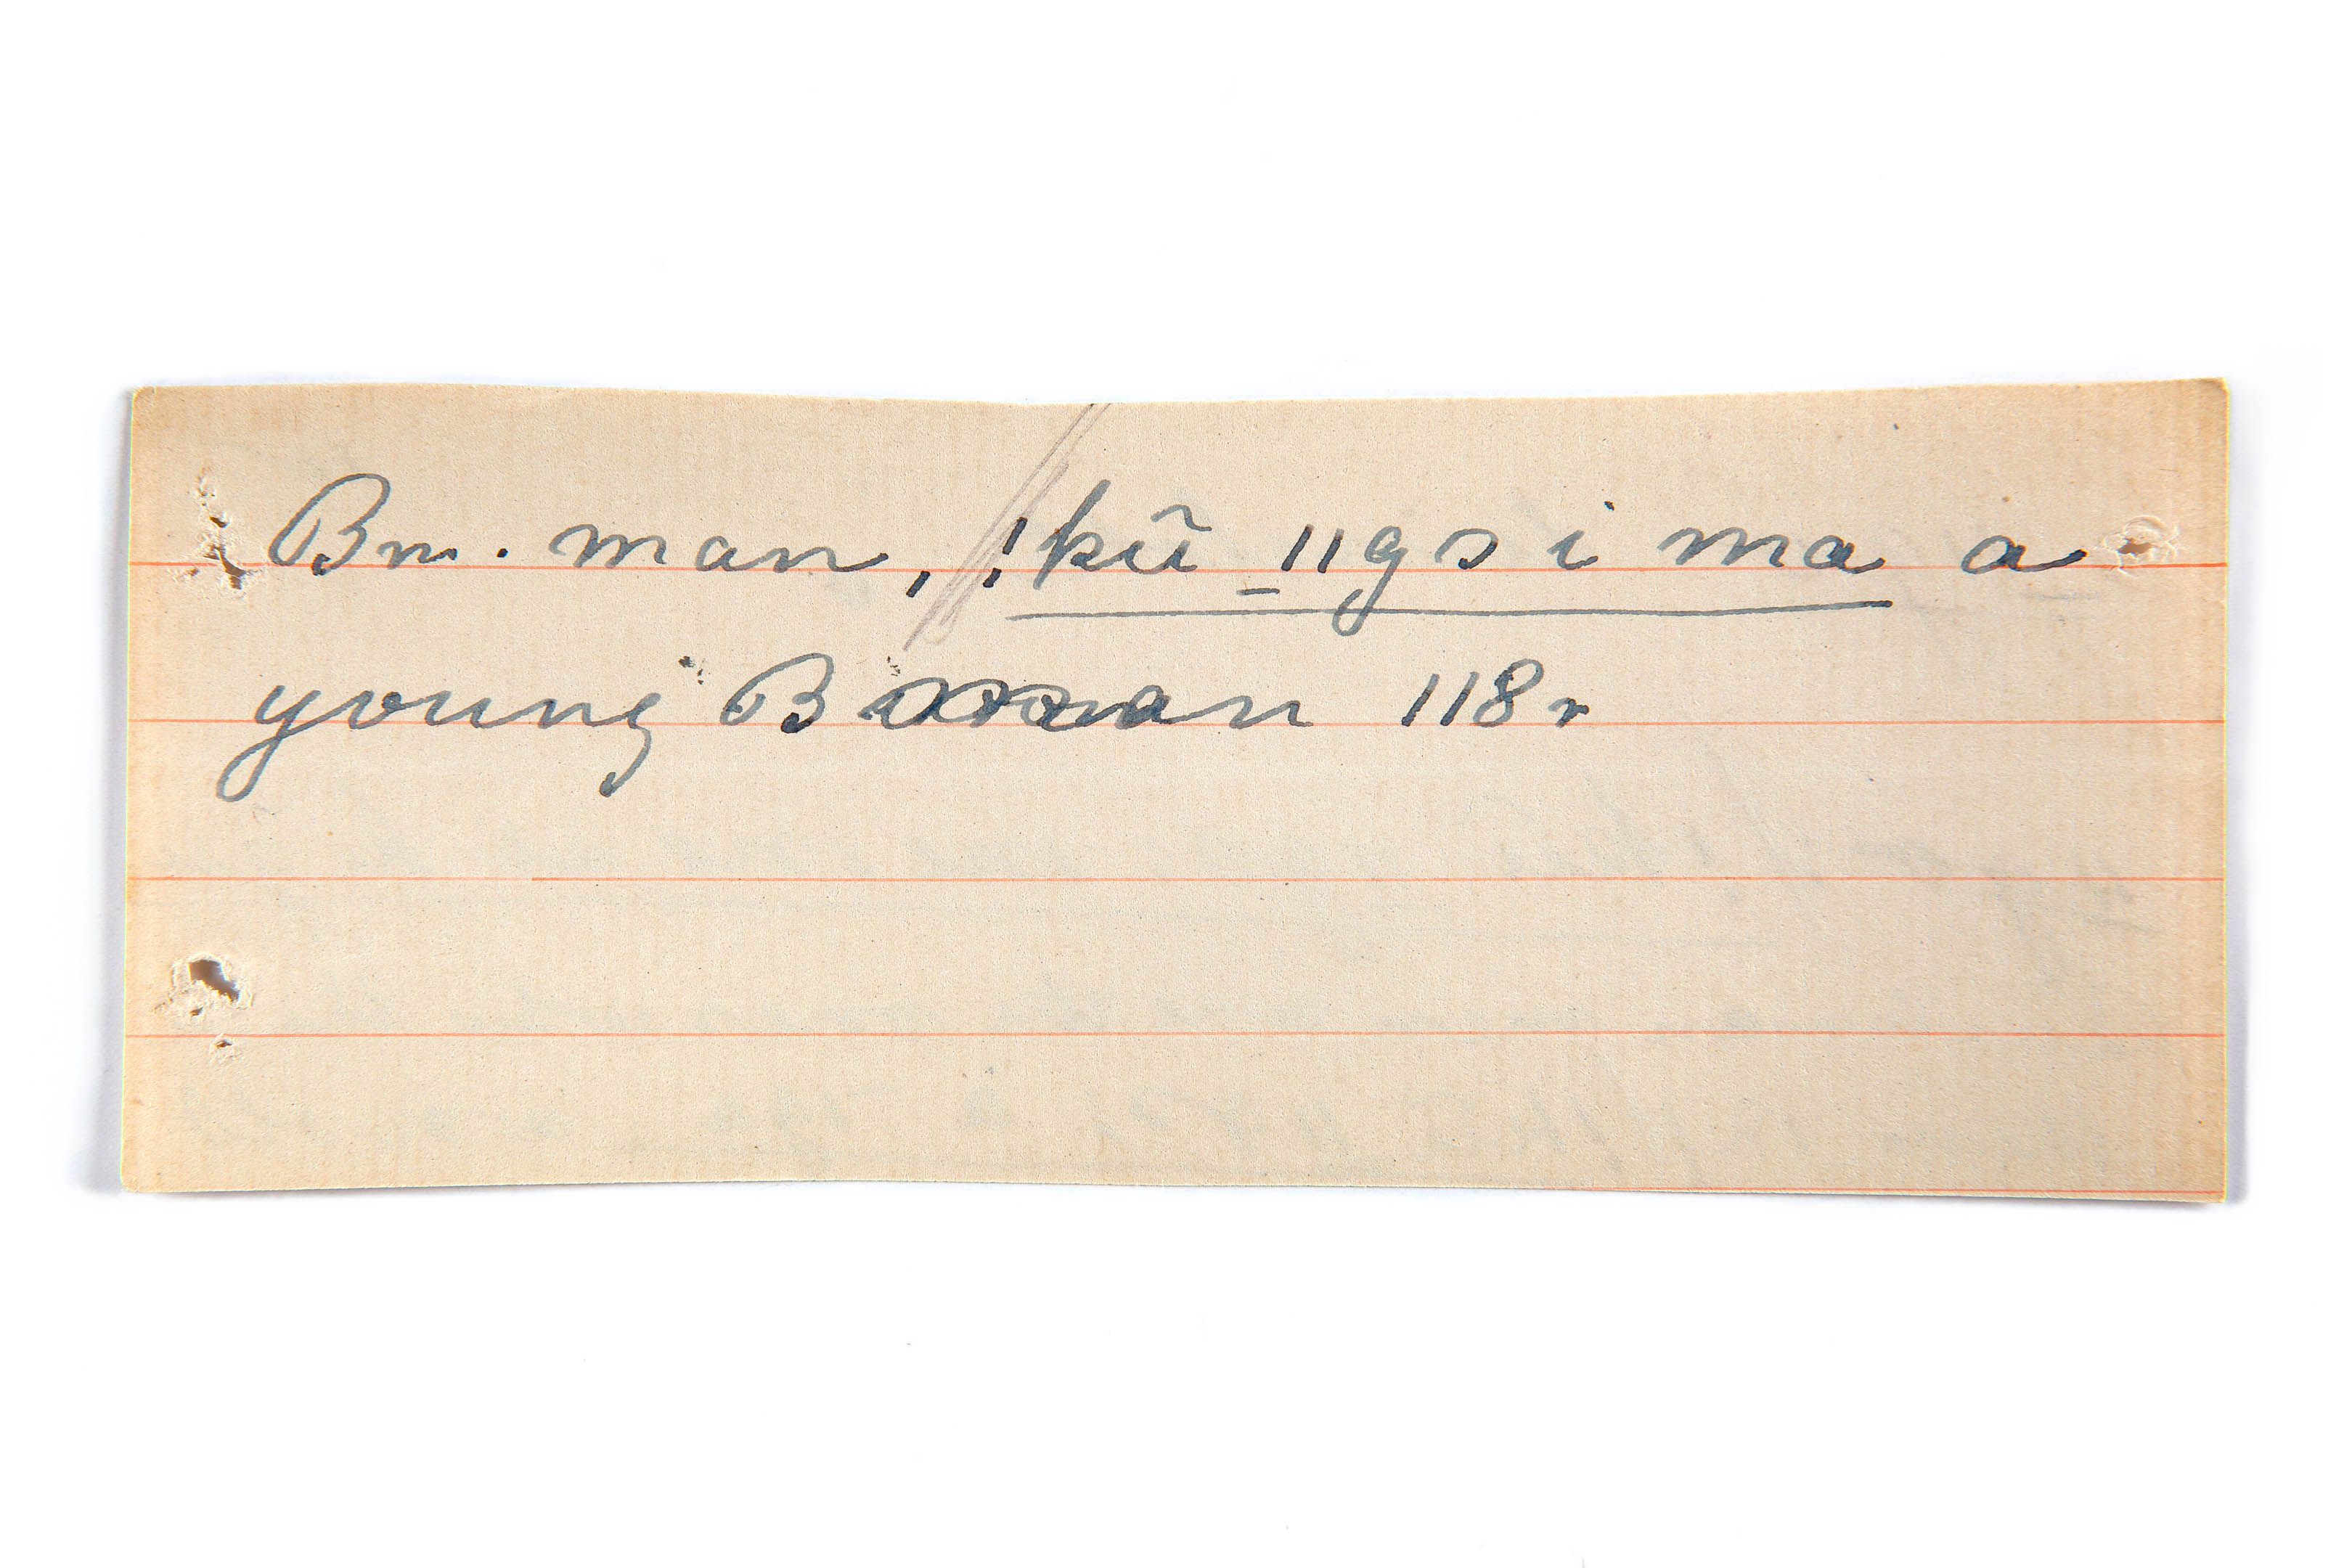 Bm. man, !kũ _ǁgsima a
young B man 118r